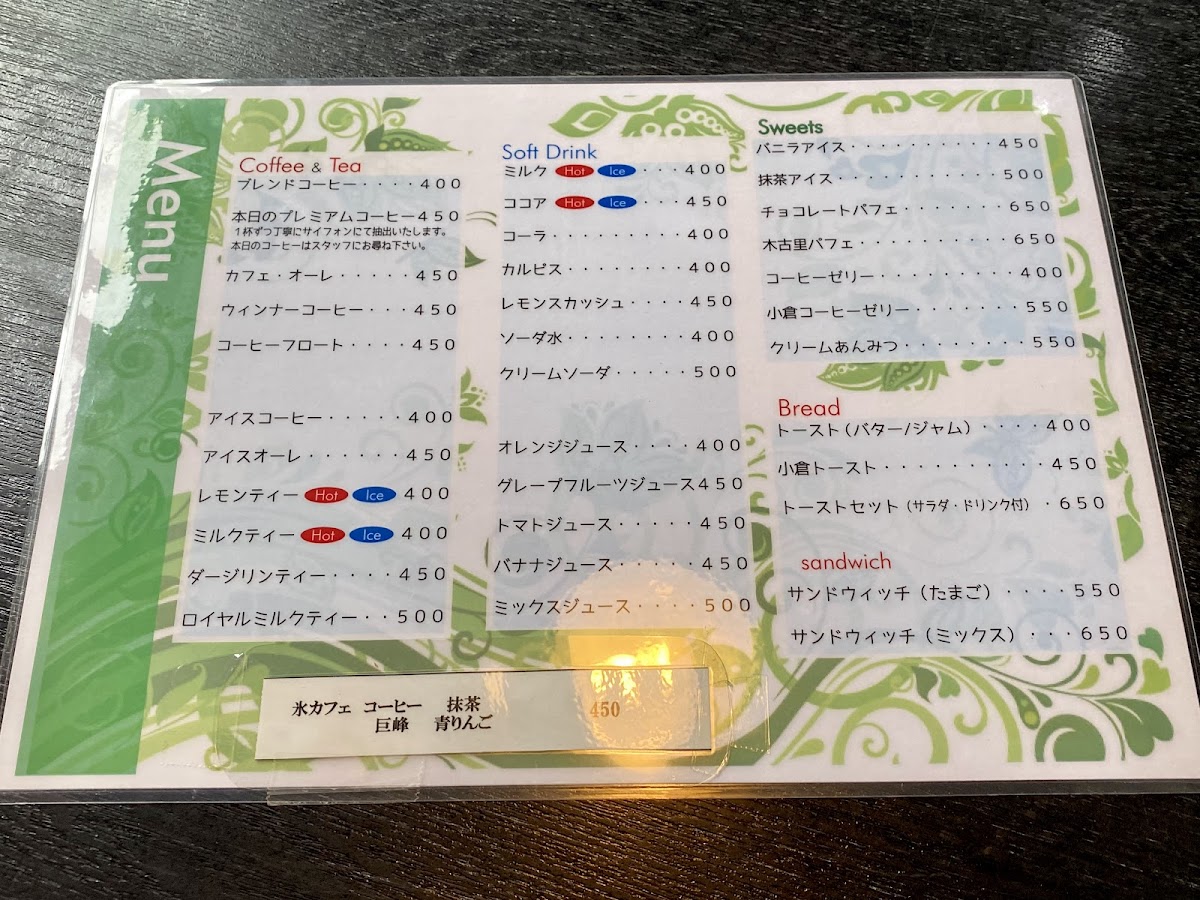 Menu
Coffee & Tea
ブレンドコーヒー・・・・400
本日のプレミアムコーヒー450
1杯ずつ丁寧にサイフォンにて抽出いたします。
本日のコーヒーはスタッフにお尋ね下さい。
カフェ・オーレ・・・・・450
ウィンナーコーヒー・・・450
コーヒーフロート・・・・450
アイスコーヒー・・・・・400
アイスオーレ・・・・・・450
レモンティー Hot Ice 400
ミルクティー Hot Ice 400
ダージリンティー・・・・450
ロイヤルミルクティー・・500
Soft Drink
ミルク Hot Ice ・・・400
ココア Hot Ice ・・・450
コーラ・・・・・・・・・400
カルピス・・・・・・・・400
レモンスカッシュ・・・・450
ソーダ水・・・・・・・・400
クリームソーダ・・・・・500
オレンジジュース・・・・400
グレープフルーツジュース450
トマトジュース・・・・・450
バナナジュース・・・・・450
ミックスジュース・・・・500
Sweets
バニラアイス・・・・・・・・・・450
抹茶アイス・・・・・・・・・・・500
チョコレートパフェ・・・・・・・650
木古里パフェ・・・・・・・・・・650
コーヒーゼリー・・・・・・・・・400
小倉コーヒーゼリー・・・・・・・550
クリームあんみつ・・・・・・・・550
Bread
トースト(バター/ジャム)・・・・400
小倉トースト・・・・・・・・・・450
トーストセット(サラダ・ドリンク付)・650
sandwich
サンドウィッチ(たまご)・・・・550
サンドウィッチ(ミックス)・・・650
氷カフェ コーヒー 抹茶 450
巨峰 青りんご